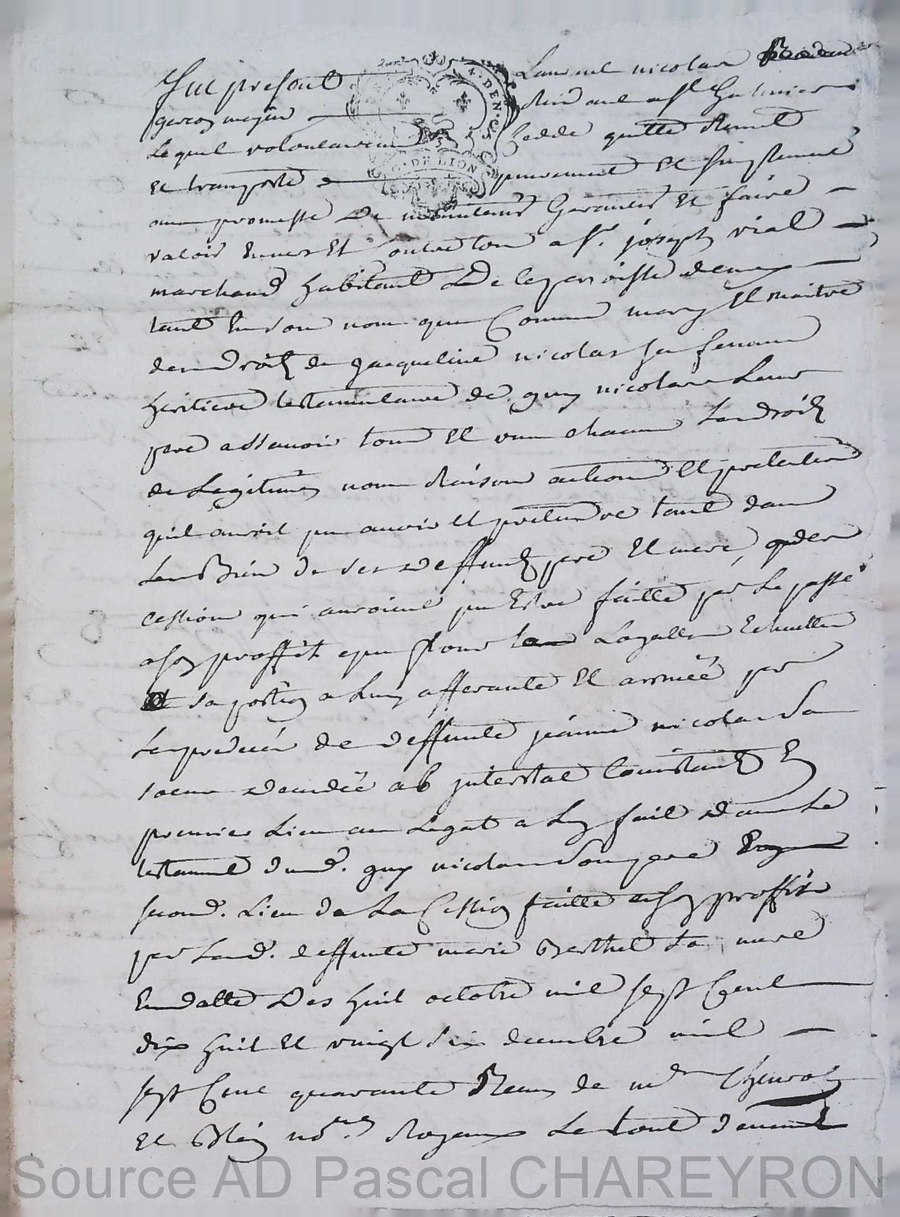 Fut présent Laurent nicolas
garçon majeur résidant a St Galmier
Lequel volontairement Cedde quitte Remet
Et transporte purement Et simplement
avec promesse De maintenir Garantir Et faire
valoir Envers Et contre tous a Sr. joseph vial
marchand habitant De la parroisse de
tant En son nom que Comme mary Et maitre
des droits de jacqueline nicolas sa femme
heritiere testamentaire de guy nicolas Leur
pere assavoir tous Et uns chacuns Les droits
de Legitimes noms Raisons actions Et pretentions
quil auroit peu avoir Et pretendre tant dans
Les Biens de ses deffunts pere Et mere,
cession qui auroient peu Estre faitte par Le passé
a son proffit que pour Legalle Echutte
Et sa portion a Luy afferante Et arrivée par
Le predecés de deffunte jeanne nicolas Sa
soeur decedée ab intestat Consistants En
premier Lieu au Legat a Luy fait dans Le
testament dud. guy nicolas Son pere En
second. Lieu de La Cession faitte a son proffit
par Lad. deffunte marie Berthet Sa mere
En datte Des huit octobre mil sept Cent
dix huit Et vingt six decembre mil
sept Cent quarante Receus de me
Et notres Royaux Le tout
4. DEN.
G. DE LION
Source AD Pascal CHAREYRON